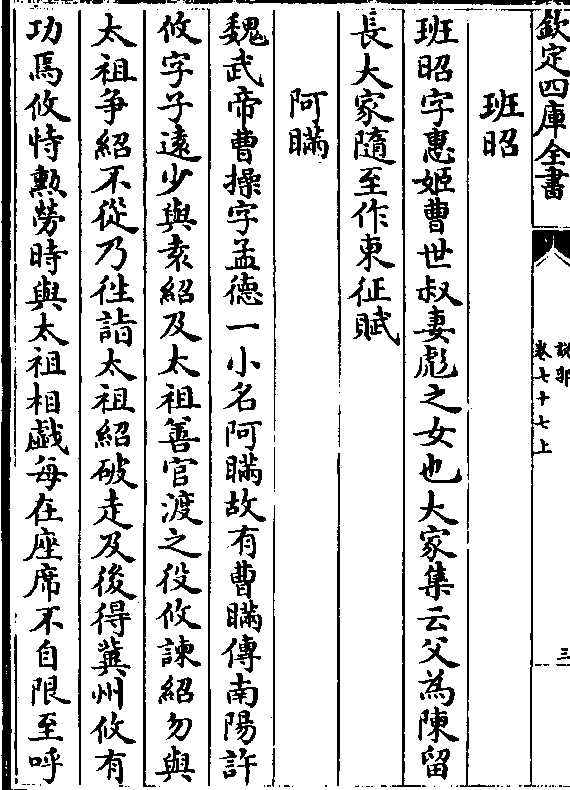 欽定四庫全書
說郛
卷七十七上
三
班昭
班昭字惠姬曹世叔妻彪之女也大家集云父為陳留
長大家隨至作東征賦
阿瞞
魏武帝曹操字孟德一小名阿瞞故有曹瞞傳南陽許
攸字子遠少與袁紹及太祖善官渡之役攸諫紹勿與
太祖爭紹不從乃徃詣太祖紹破走及後得冀州攸有
功焉攸恃勲勞時與太祖相戲每在座席不自限至呼